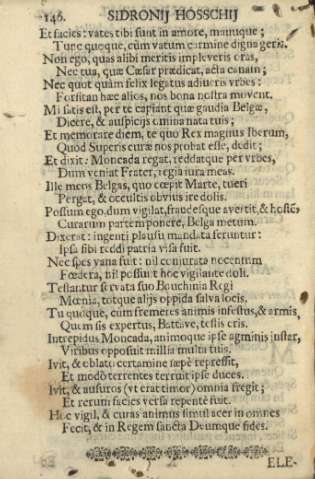 146. SIDRONIJ HOSSCHIJ
Et facies: vates tibi sunt in amore, manuque;
Tunc quoque, cùm vatum carmine digna geris.
Non ego, quas alibi meritis impleveris oras,
Nec tua, quæ Cæsar prædicat, acta canam;
Nec quot quàm felix legatus adiveris vrbes:
Forsitan hæc alios, nos bona nostra movent.
Mi satis est, per te capiant quæ gaudia Belgæ,
Dicere, & auspicijs omina nata tuis;
Et memorare diem, te quo Rex magnus Iberum,
Quod Superis curæ nos probat esse, dedit;
Et dixit: Moncada regat, reddatque per vrbes,
Dum veniat Frater, regia iura meas.
Ille meos Belgas, quo cœpit Marte, tueri
Pergat, & occultis obvius ire dolis.
Possum ego, dum vigilat, fraudesque avertit, & hostẽ,
Curarum partem ponere, Belga metum.
Dixerat: ingenti plausu mandata feruntur:
Ipsa sibi reddi patria visa fuit.
Nec spes vana fuit: nil coniurata nocentum
Fœdera, nil possunt hoc vigilante doli.
Testantur servata suo Bouchinia Regi
Mœnia, totque alijs oppida salva locis.
Tu quoque, cùm fremeres animis infestus, & armis,
Quem sis expertus, Battave, testis eris.
Intrepidus Moncada, animoque ipse agminis instar,
Viribus opposuit millia multa tuis.
Ivit, & oblato certamine sæpè repressit,
Et modò terrentes terruit ipse duces.
Ivit, & ausuros (vt erat timor) omnia fregit;
Et rerum facies versa repentè fuit.
Hoc vigil, & curas animus simul acer in omnes
Fecit, & in Regem sancta Deumque fides.
ELE-